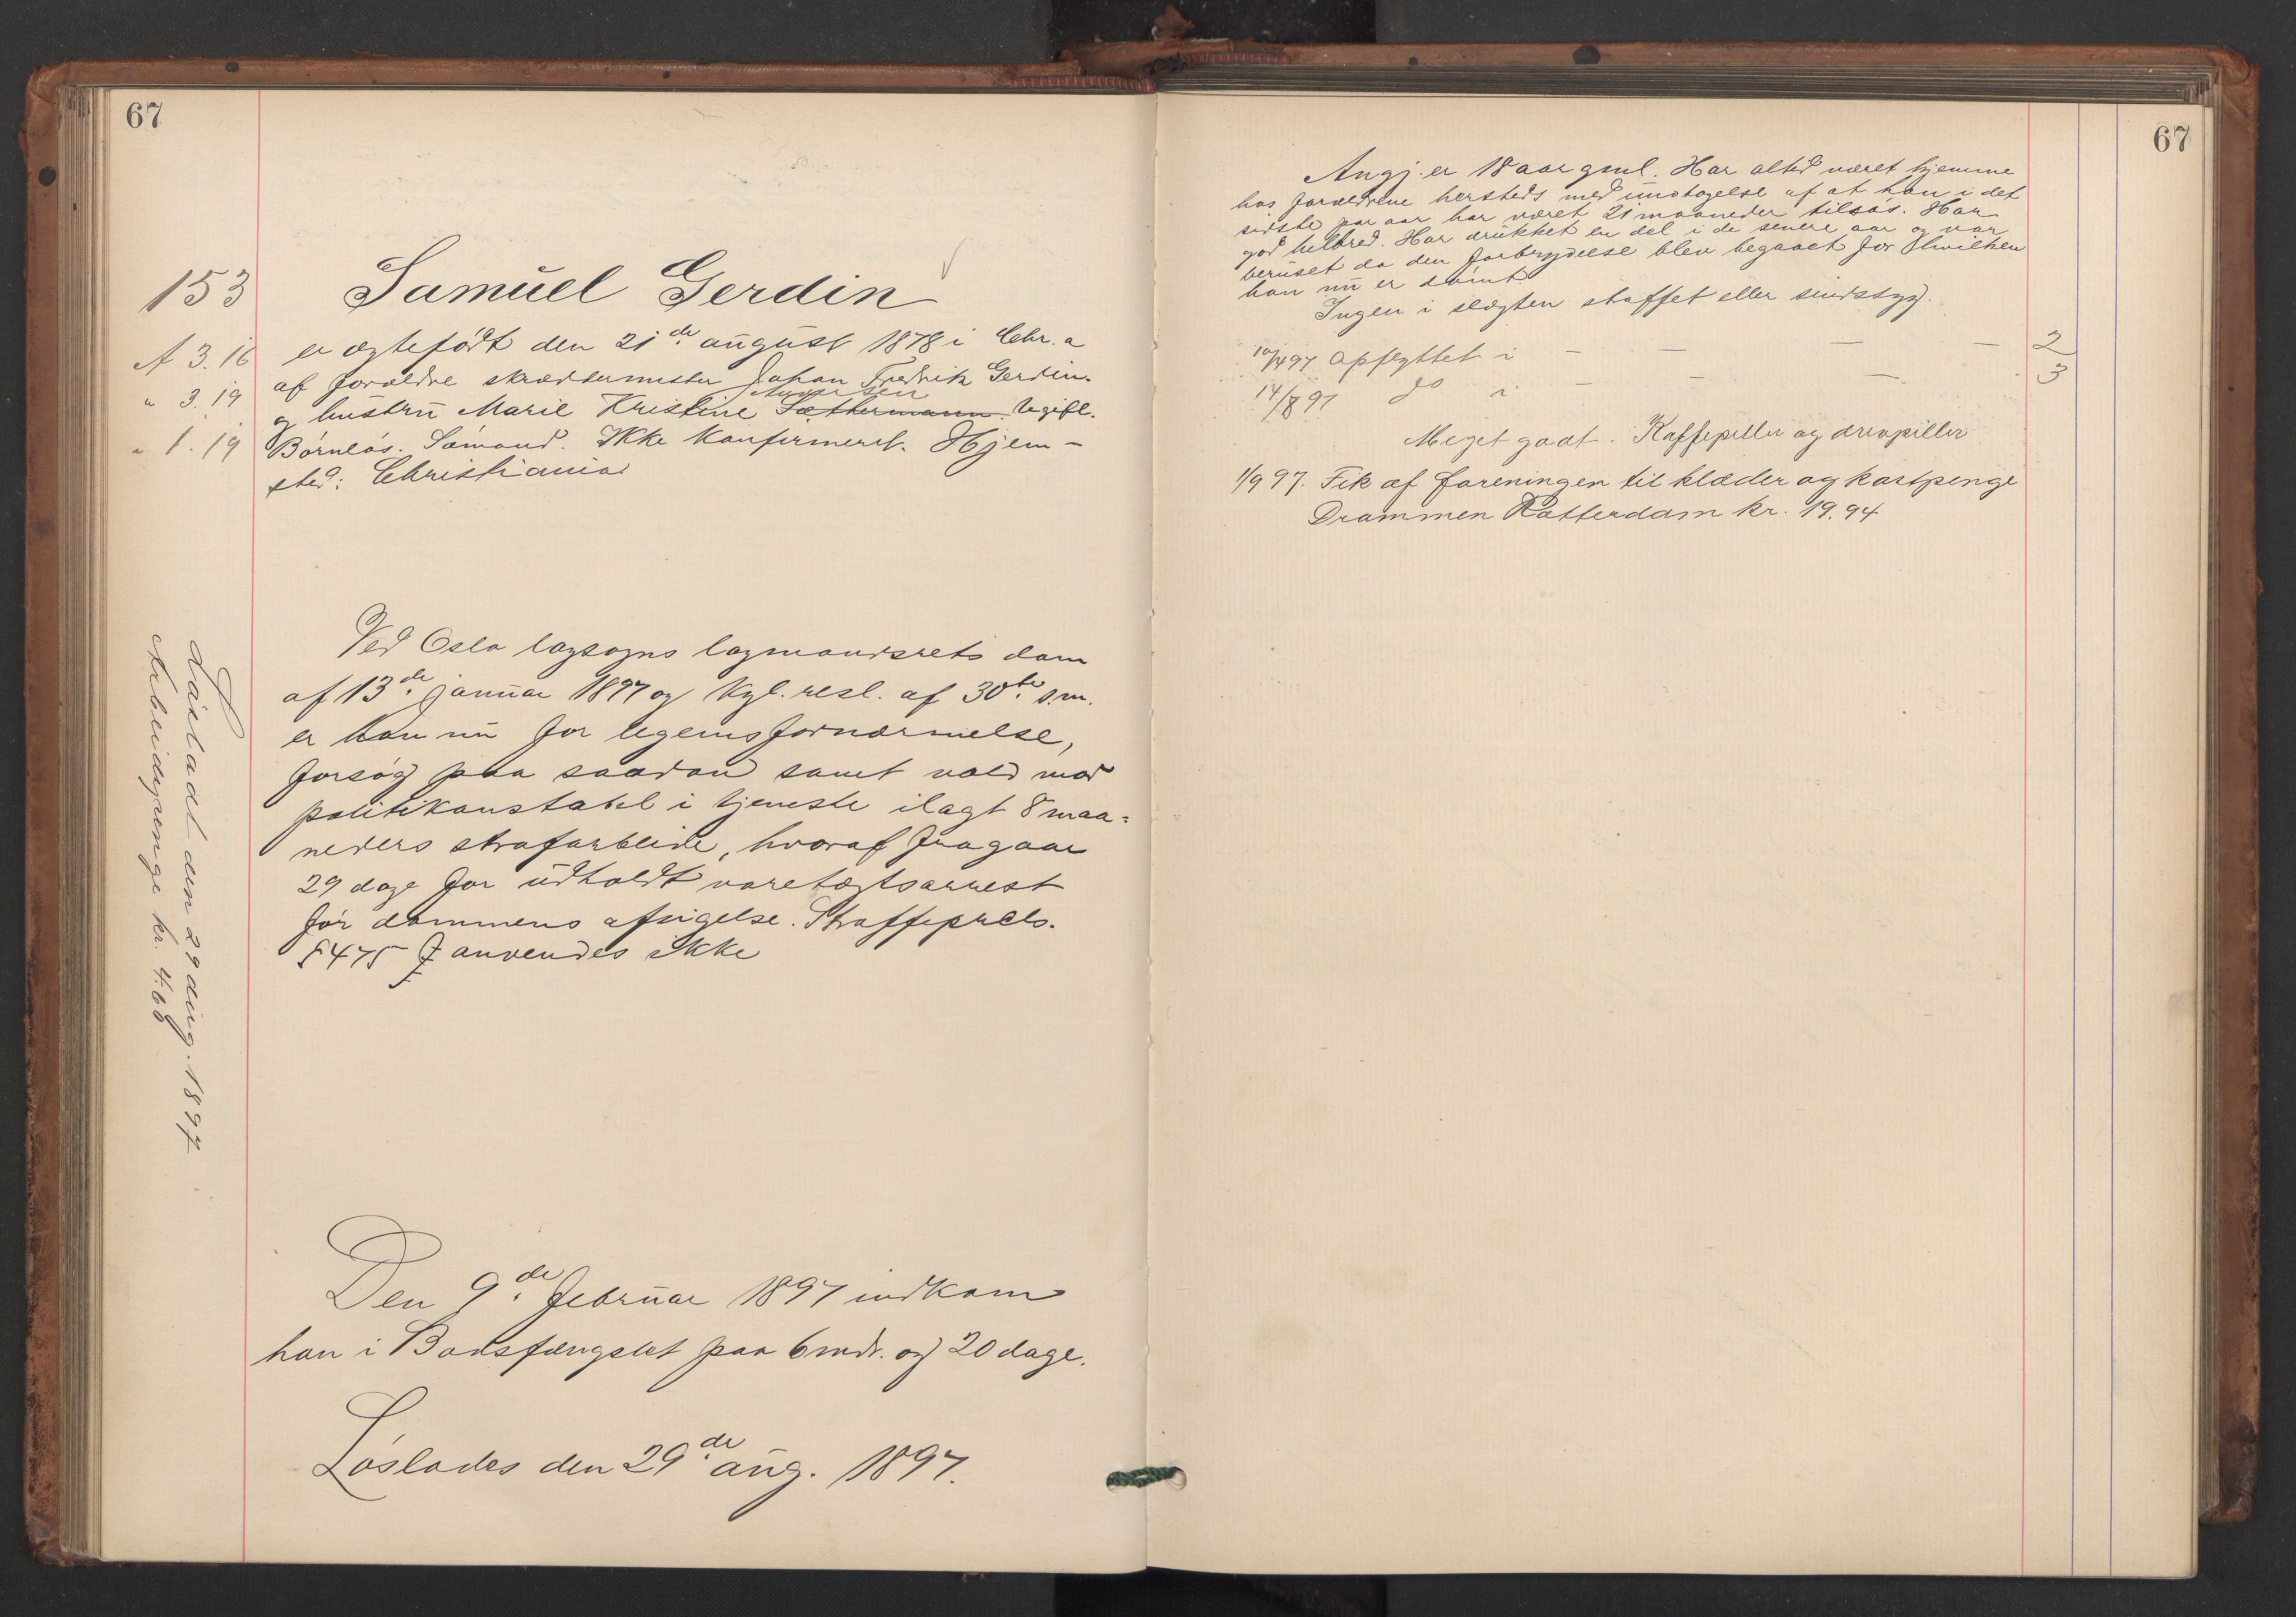 67
153
Samuel Gerdin
A 3.16
er ægtefødt den 21de august 1878 i Chr.a
af forældre skræddermester Johan Fredrik Gerdin
" 3.19
og hustru Marie Kristine Sæthermann. Ugift.
" 1.19
Børnløs. Sømand. Ikke konfirmeret. Hjem-
sted: Christiania
Ved Oslo lagsogns lagmandsrets dom
af 13de januar 1897 og kgl. resl. af 30te s.m.
er han nu for legemsfornærmelse,
forsøg paa saadan samt vold mod
politikonstabel i tjeneste ilagt 8 maa=
neders strafarbeide, hvoraf fragaar
29 dage for udholdt varetægtsarrest
før dommens afsigelse. Straffeprcls.
§ 475 anvendes ikke
Løsladt den 29 aug. 1897
Arbeidspenge kr. 4.68
Den 9de februar 1897 indkom
han i Bodsfængslet paa 6 mdr. og 20 dage.
Løslades den 29de aug. 1897.
67
Angj. er 18 aar gml. Har altid været hjemme
hos forældrene hersteds med undtagelse af at han i det
sidste par aar har været 21 maaneder tilsøs. Har
god helbred. Har drukket en del i de senere aar og var
beruset da den forbrydelse blev begaaet for hvilken
han nu er dømt
Ingen i slægten straffet eller sindssyg.
10/4 97 Opflyttet i — — — — 2
14/8 97 do i — — — 3
Meget godt. Kaffepiller og
1/9 97. Fik af foreningen til klæder og kostpenge
Drammen Rotterdam kr. 19.94